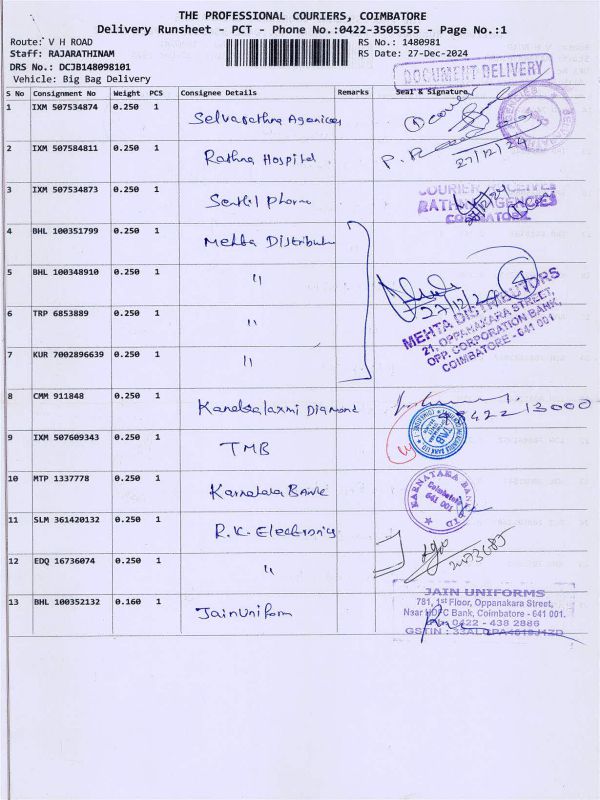 THE PROFESSIONAL COURIERS, COIMBATORE
Delivery Runsheet - PCT - Phone No.:0422-3505555 - Page No.:1
Route: V H ROAD RS No.: 1480981
Staff: RAJARATHINAM RS Date: 27-Dec-2024
DRS No.: DCJB148098101
Vehicle: Big Bag Delivery
DOCUMENT DELIVERY
S No Consignment No Weight PCS Consignee Details Remarks Seal & Signature
1 IXM 507534874 0.250 1 Selvarathna Agencies cover
2 IXM 507584811 0.250 1 Rathna Hospital
27/12/24
3 IXM 507534873 0.250 1 Senthil Pharm
COIMBATORE
4 BHL 100351799 0.250 1 Mehta Distributer
5 BHL 100348910 0.250 1 "
27/12/24
6 TRP 6853889 0.250 1 "
7 KUR 7002896639 0.250 1 "
MEHTA DISTRIBUTORS
21, OPPANAKARA STREET,
OPP. CORPORATION BANK,
COIMBATORE - 641 001
8 CMM 911848 0.250 1 Diamond
9 IXM 507609343 0.250 1 TMB
TMB
10 MTP 1337778 0.250 1 Karnataka Bank
KARNATAKA BANK LTD
Coimbatore
641 001
11 SLM 361420132 0.250 1 R.K. Electronics
12 EDQ 16736074 0.250 1 "
13 BHL 100352132 0.160 1 Jain Uniform
JAIN UNIFORMS
781, 1st Floor, Oppanakara Street,
Near HDFC Bank, Coimbatore - 641 001.
0422 - 438 2886
GSTIN :